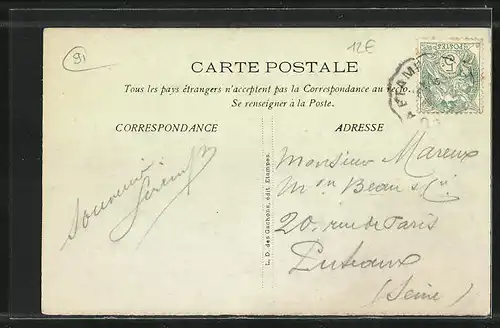 91
12€
CARTE POSTALE
Tous les pays étrangers n'acceptent pas la Correspondance au recto.
Se renseigner à la Poste.
CORRESPONDANCE
ADRESSE
Souvenir
L. D. des Gachons, édit. Etampes.
Monsieur Mareux
Mon Beau & Cie
20. rue de Paris
Puteaux
(Seine)
ETAMP